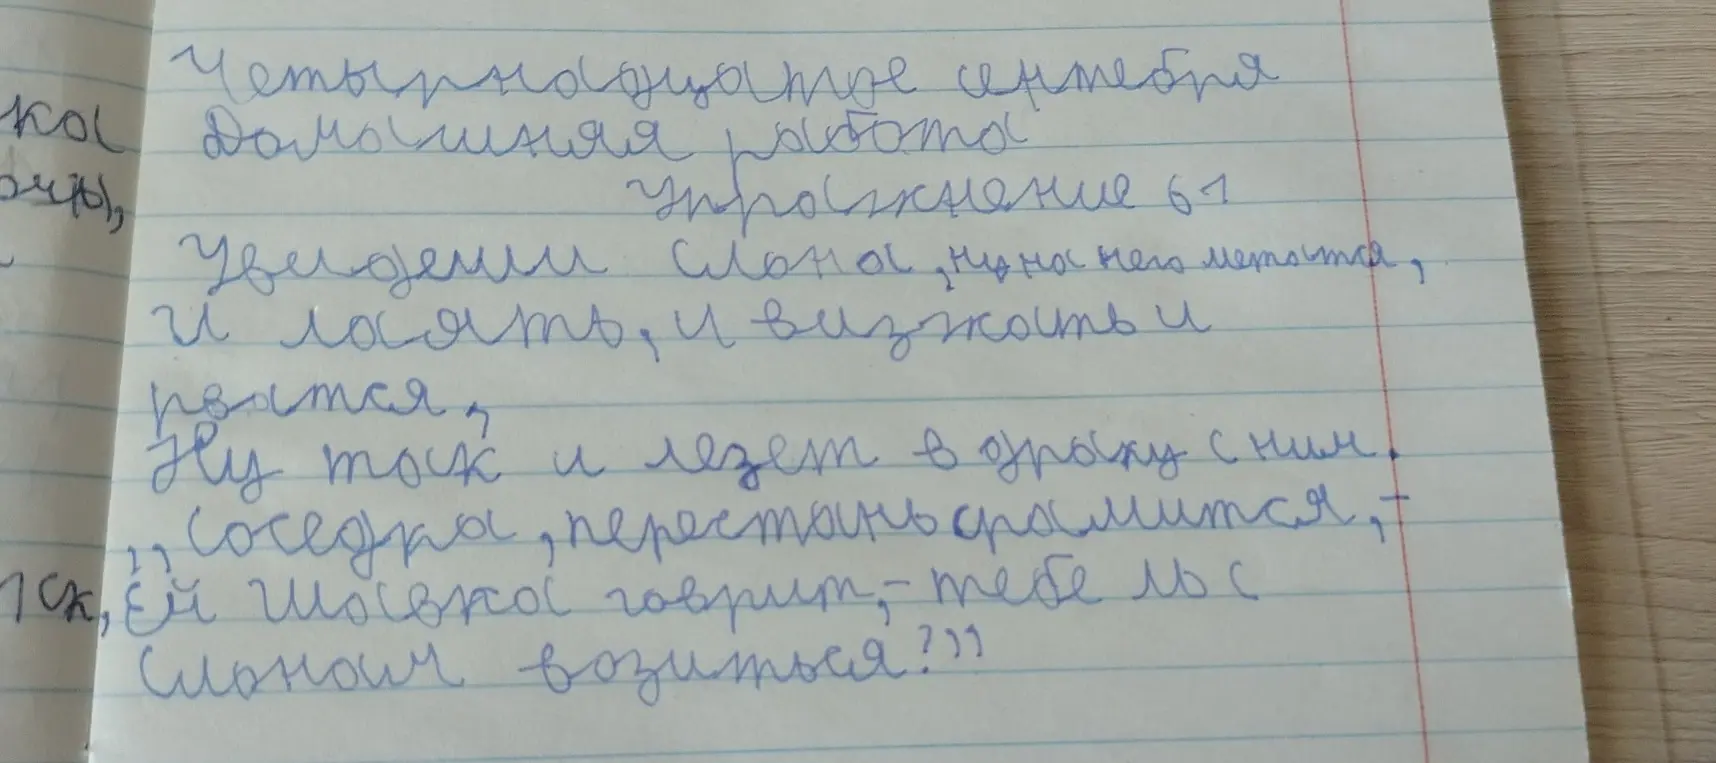 Четырнадцатое сентебря
ка Домашняя работа
Упражнение 61
Увидеши Слона, ну на него метатся,
и лаять, и визжать и
рватся,
Ну так и лезет в драку с ним.
,,Соседка, перестань срамится, -
Ей Шавка говрит, - тебе ль с
Слоном возиться?"